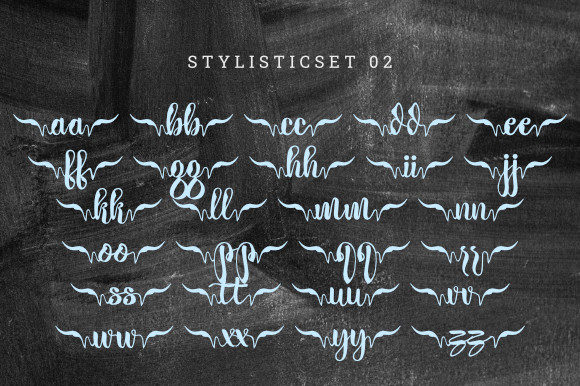 STYLISTICSET 02
aa bb cc dd ee
ff gg hh ii jj
kk ll mm nn
oo pp qq rr
ss tt uu vv
ww xx yy zz